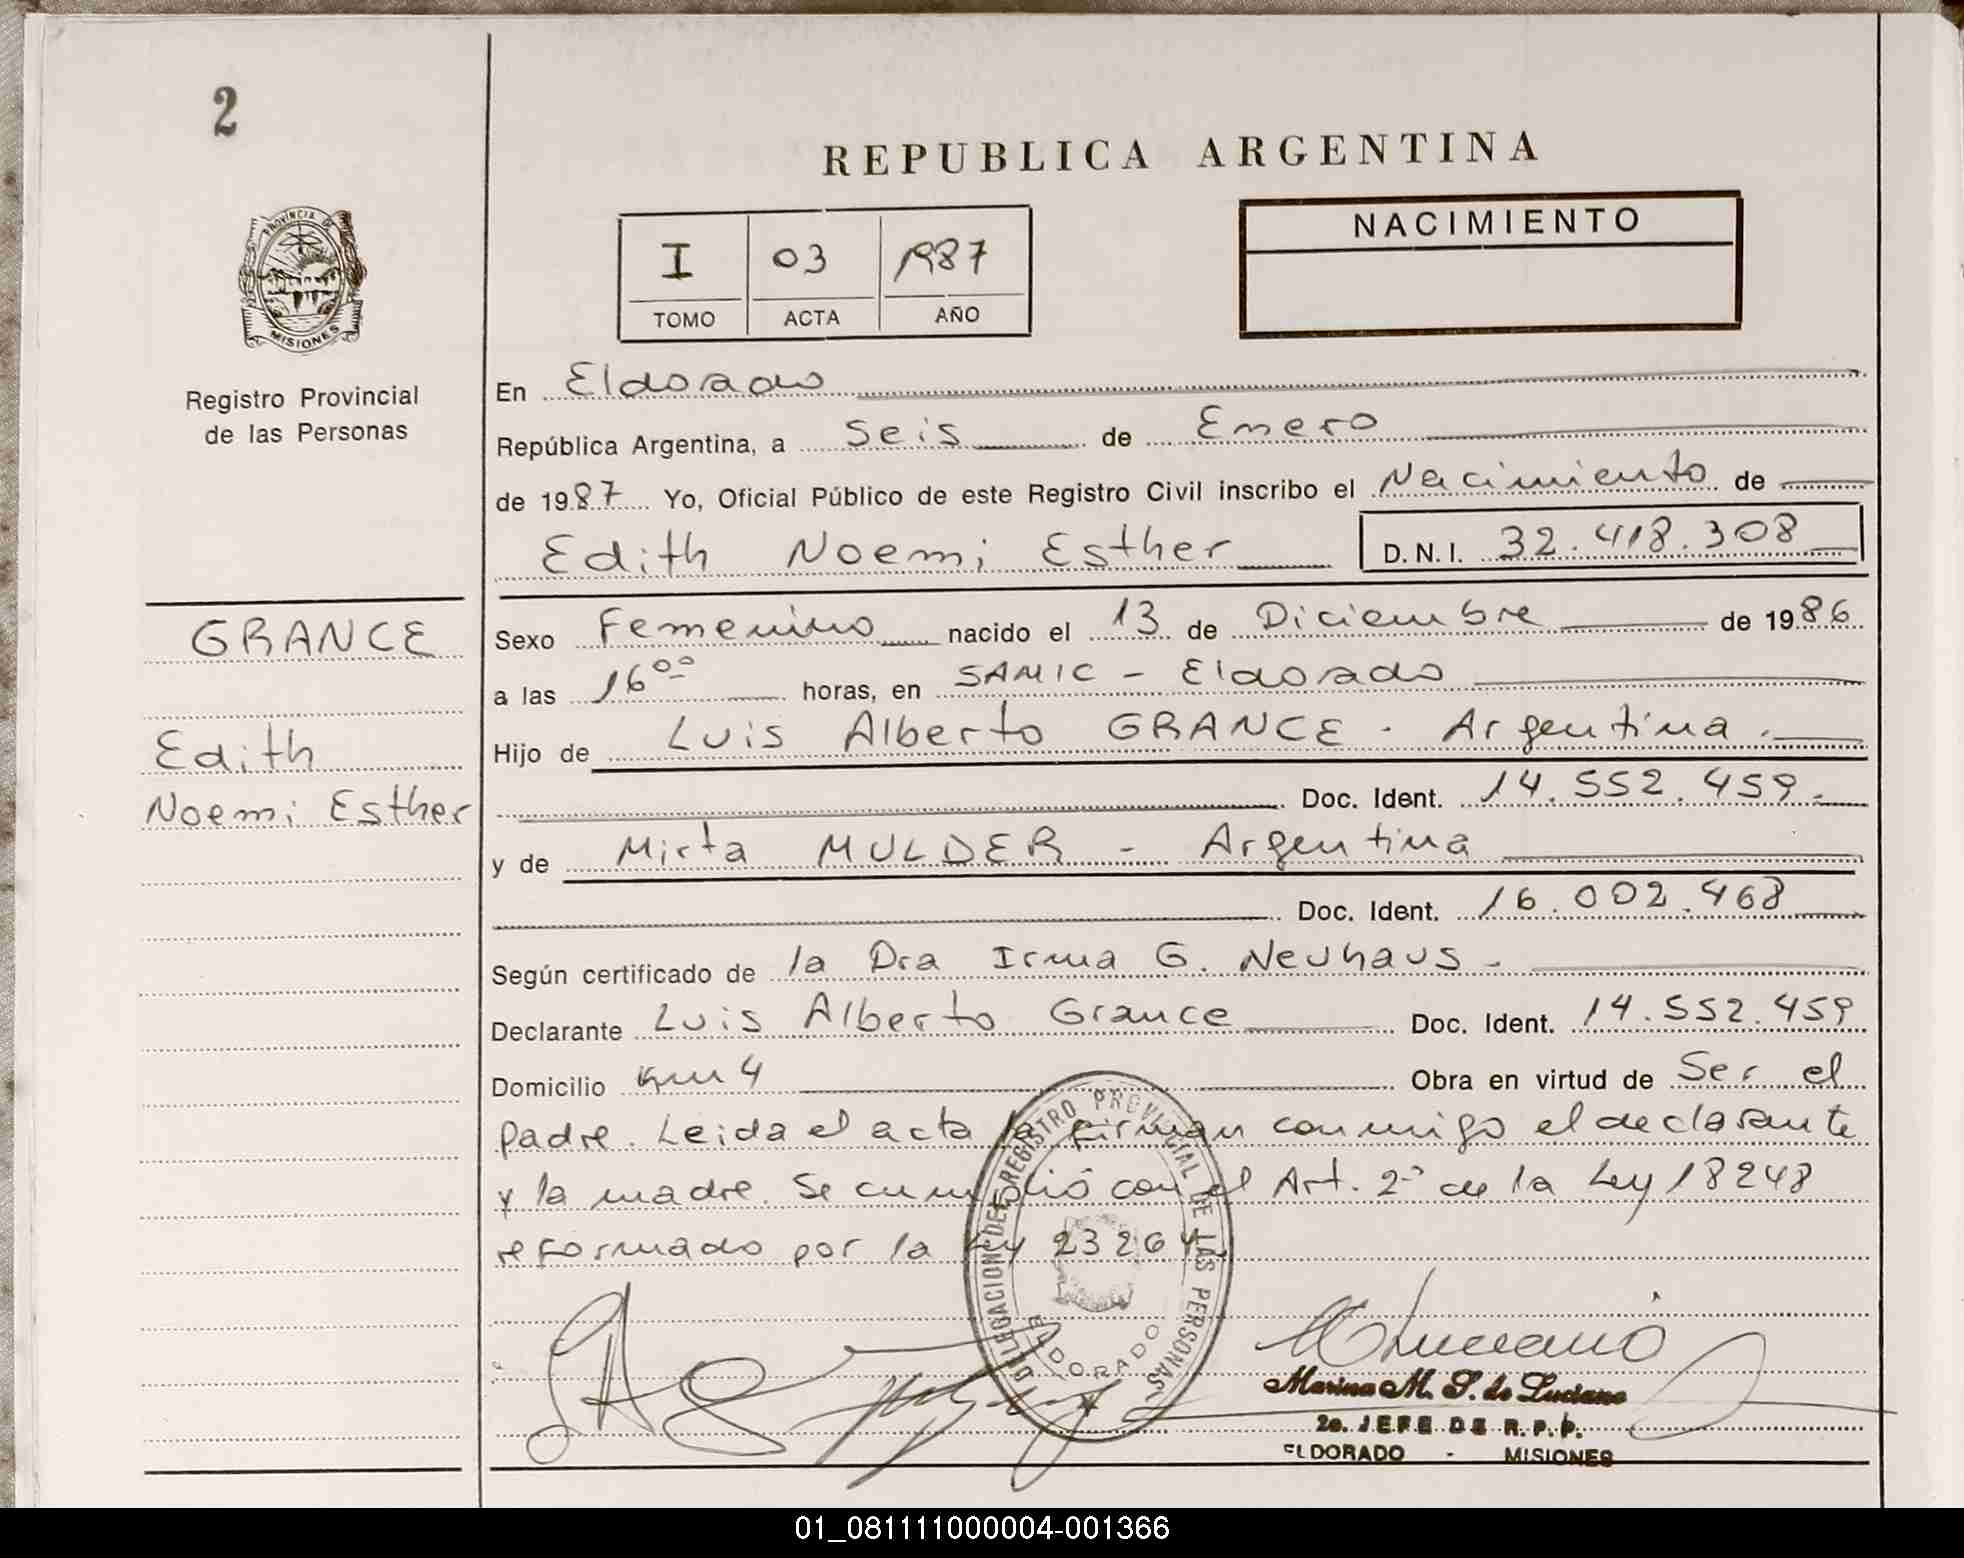 2
PROVINCIA DE
MISIONES
Registro Provincial
de las Personas
GRANCE
Edith
Noemi Esther
REPUBLICA ARGENTINA
I 03 1987
TOMO ACTA AÑO
NACIMIENTO
En Eldorado
República Argentina, a Seis de Enero
de 1987 Yo, Oficial Público de este Registro Civil inscribo el Nacimiento de
Edith Noemi Esther D.N.I. 32.418.308
Sexo Femenino nacido el 13 de Diciembre de 1986
a las 16 00 horas, en SAMIC - Eldorado
Hijo de Luis Alberto GRANCE - Argentina.
Doc. Ident. 14.552.459.
y de Mirta MULDER - Argentina
Doc. Ident. 16.002.468
Según certificado de la Dra Irma G. Neuhaus.
Declarante Luis Alberto Grance Doc. Ident. 14.552.459
Domicilio km 4 Obra en virtud de Ser el
padre. Leida el acta la firman conmigo el declarante
y la madre. Se cumplió con el Art. 2º de la Ley 18248
reformado por la Ley 23264
DELEGACION DEL REGISTRO PROVINCIAL DE LAS PERSONAS
ELDORADO
Marina M. S. de Luciano
2a. JEFE DE R.P.P.
ELDORADO - MISIONES
01_081111000004-001366